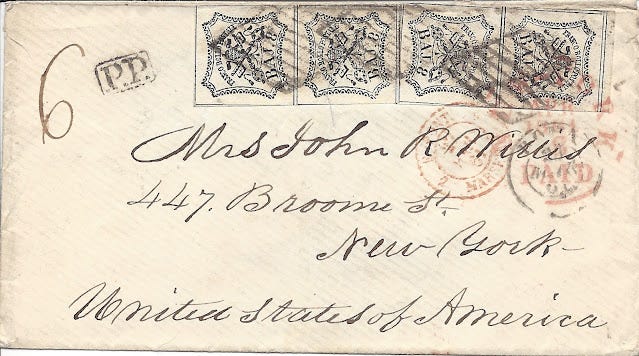 BAJ 8 BAJ 8 BAJ 8 BAJ 8
P.P.
6
PAID
Mrs John R Willis
447. Broome St.
New York
United States of America